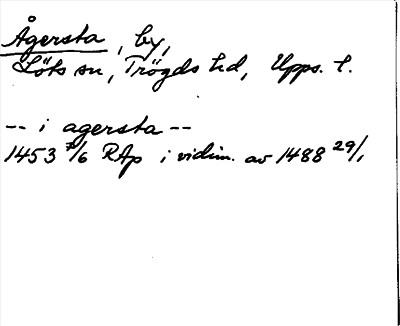 Ågersta, by,
Löts sn, Trögds hd, Upps. l.
-- i agersta --
1453 7/6 RAp i vidim. av 1488 29/1